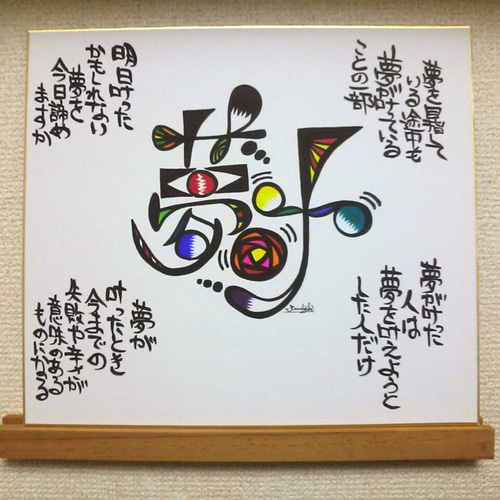 夢を見て
いる途中も
夢が叶っている
ことの一部
明日叶った
かもしれない
夢を
今日諦め
ますか
夢叶
夢が叶った
人は
夢を叶えようと
した人だけ
夢が
叶ったとき
今までの
失敗や辛さが
意味のある
ものになる